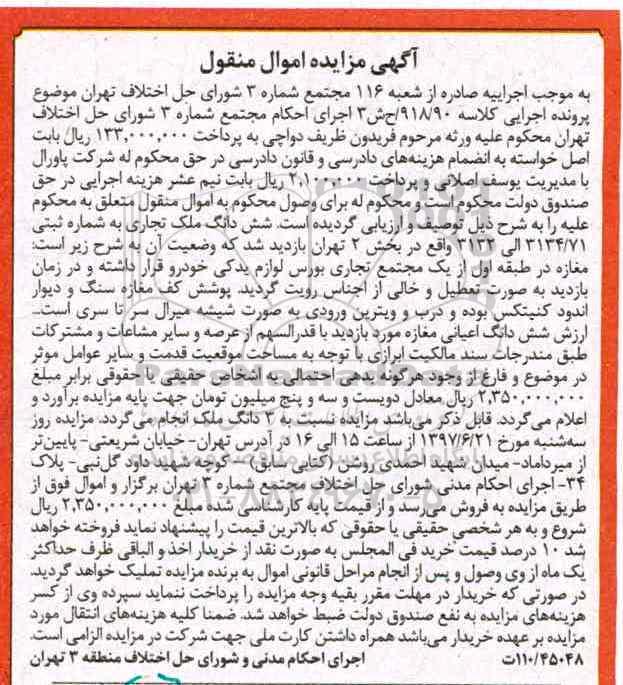 آگهی مزایده اموال منقول
به موجب اجراییه صادره از شعبه ۱۱۶ مجتمع شماره ۳ شورای حل اختلاف تهران موضوع
پرونده اجرایی کلاسه ۹۱۸/۹۰/ح‌ش۳ اجرای احکام مجتمع شماره ۳ شورای حل اختلاف
تهران محکوم علیه ورثه مرحوم فریدون ظریف دواچی به پرداخت ۱۳۳,۰۰۰,۰۰۰ ریال بابت
اصل خواسته به انضمام هزینه‌های دادرسی و قانون دادرسی در حق محکوم له شرکت پاورال
با مدیریت یوسف اصلانی و پرداخت ۲,۱۰۰۰۰۰ ریال بابت نیم عشر هزینه اجرایی در حق
صندوق دولت محکوم است و محکوم له برای وصول محکوم به اموال منقول متعلق به محکوم
علیه را به شرح ذیل توصیف و ارزیابی گردیده است. شش دانگ ملک تجاری به شماره ثبتی
۳۱۳۴/۷۱ الی ۳۱۳۴ واقع در بخش ۲ تهران بازدید شد که وضعیت آن به شرح زیر است:
مغازه در طبقه اول از یک مجتمع تجاری بورس لوازم یدکی خودرو قرار داشته و در زمان
بازدید به صورت تعطیل و خالی از اجناس رویت گردید. پوشش کف مغازه سنگ و دیوار
اندود کنیتکس بوده و درب و ویترین ورودی به صورت شیشه میرال سر تا سری است.
ارزش شش دانگ اعیانی مغازه مورد بازدید با قدرالسهم از عرصه و سایر مشاعات و مشترکات
طبق مندرجات سند مالکیت ابرازی با توجه به مساحت موقعیت قدمت و سایر عوامل موثر
در موضوع و فارغ از وجود هرگونه بدهی احتمالی به اشخاص حقیقی یا حقوقی برابر مبلغ
۲,۳۵۰,۰۰۰,۰۰۰ ریال معادل دویست و سه و پنج میلیون تومان جهت پایه مزایده برآورد و
اعلام می‌گردد. قابل ذکر می‌باشد مزایده نسبت به ۳ دانگ ملک انجام می‌گردد. مزایده روز
سه‌شنبه مورخ ۱۳۹۷/۶/۲۱ از ساعت ۱۵ الی ۱۶ در آدرس تهران- خیابان شریعتی- پایین‌تر
از میرداماد- میدان شهید احمدی روشن (کتابی سابق)- کوچه شهید داود گل‌نبی- پلاک
۳۴- اجرای احکام مدنی شورای حل اختلاف مجتمع شماره ۳ تهران برگزار و اموال فوق از
طریق مزایده به فروش می‌رسد و از قیمت پایه کارشناسی شده مبلغ ۲,۳۵۰,۰۰۰,۰۰۰ ریال
شروع و به هر شخصی حقیقی یا حقوقی که بالاترین قیمت را پیشنهاد نماید فروخته خواهد
شد ۱۰ درصد قیمت خرید فی المجلس به صورت نقد از خریدار اخذ و الباقی ظرف حداکثر
یک ماه از وی وصول و پس از انجام مراحل قانونی اموال به برنده مزایده تملیک خواهد گردید.
در صورتی که خریدار در مهلت مقرر بقیه وجه مزایده را پرداخت ننماید سپرده وی از کسر
هزینه‌های مزایده به نفع صندوق دولت ضبط خواهد شد. ضمنا کلیه هزینه‌های انتقال مورد
مزایده بر عهده خریدار می‌باشد همراه داشتن کارت ملی جهت شرکت در مزایده الزامی است.
۱۱۰/۴۵۰۴۸ت اجرای احکام مدنی و شورای حل اختلاف منطقه ۳ تهران